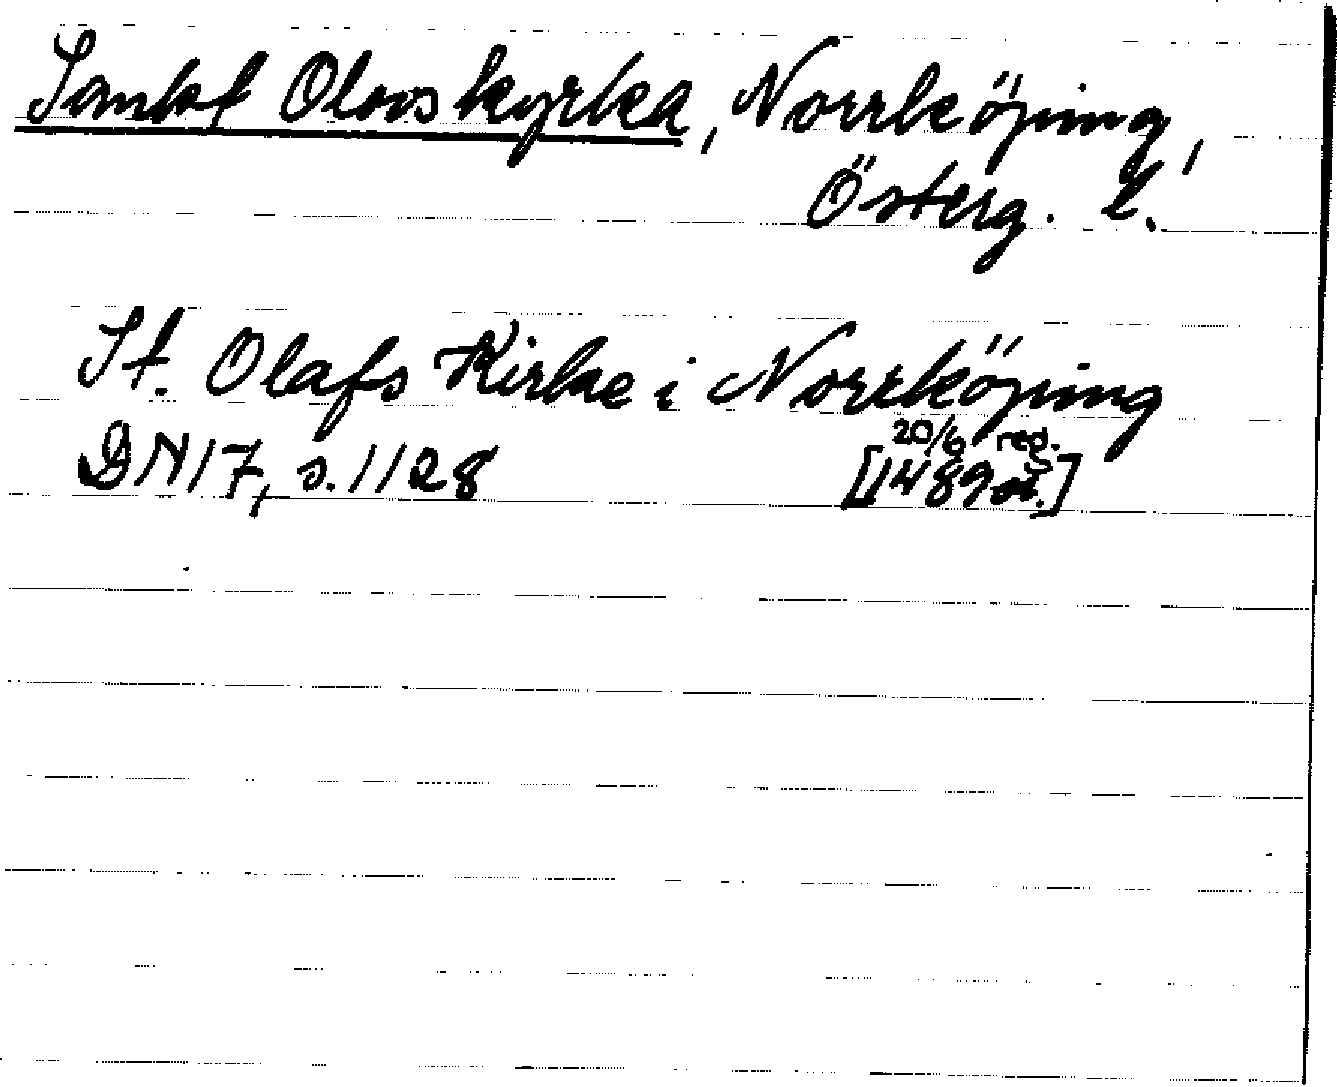 Sankt Olovs kyrka, Norrköping,
Österg. l.
St. Olafs Kirke i Norrköping
20/6 reg.
DN 17, s. 1128 [1489]